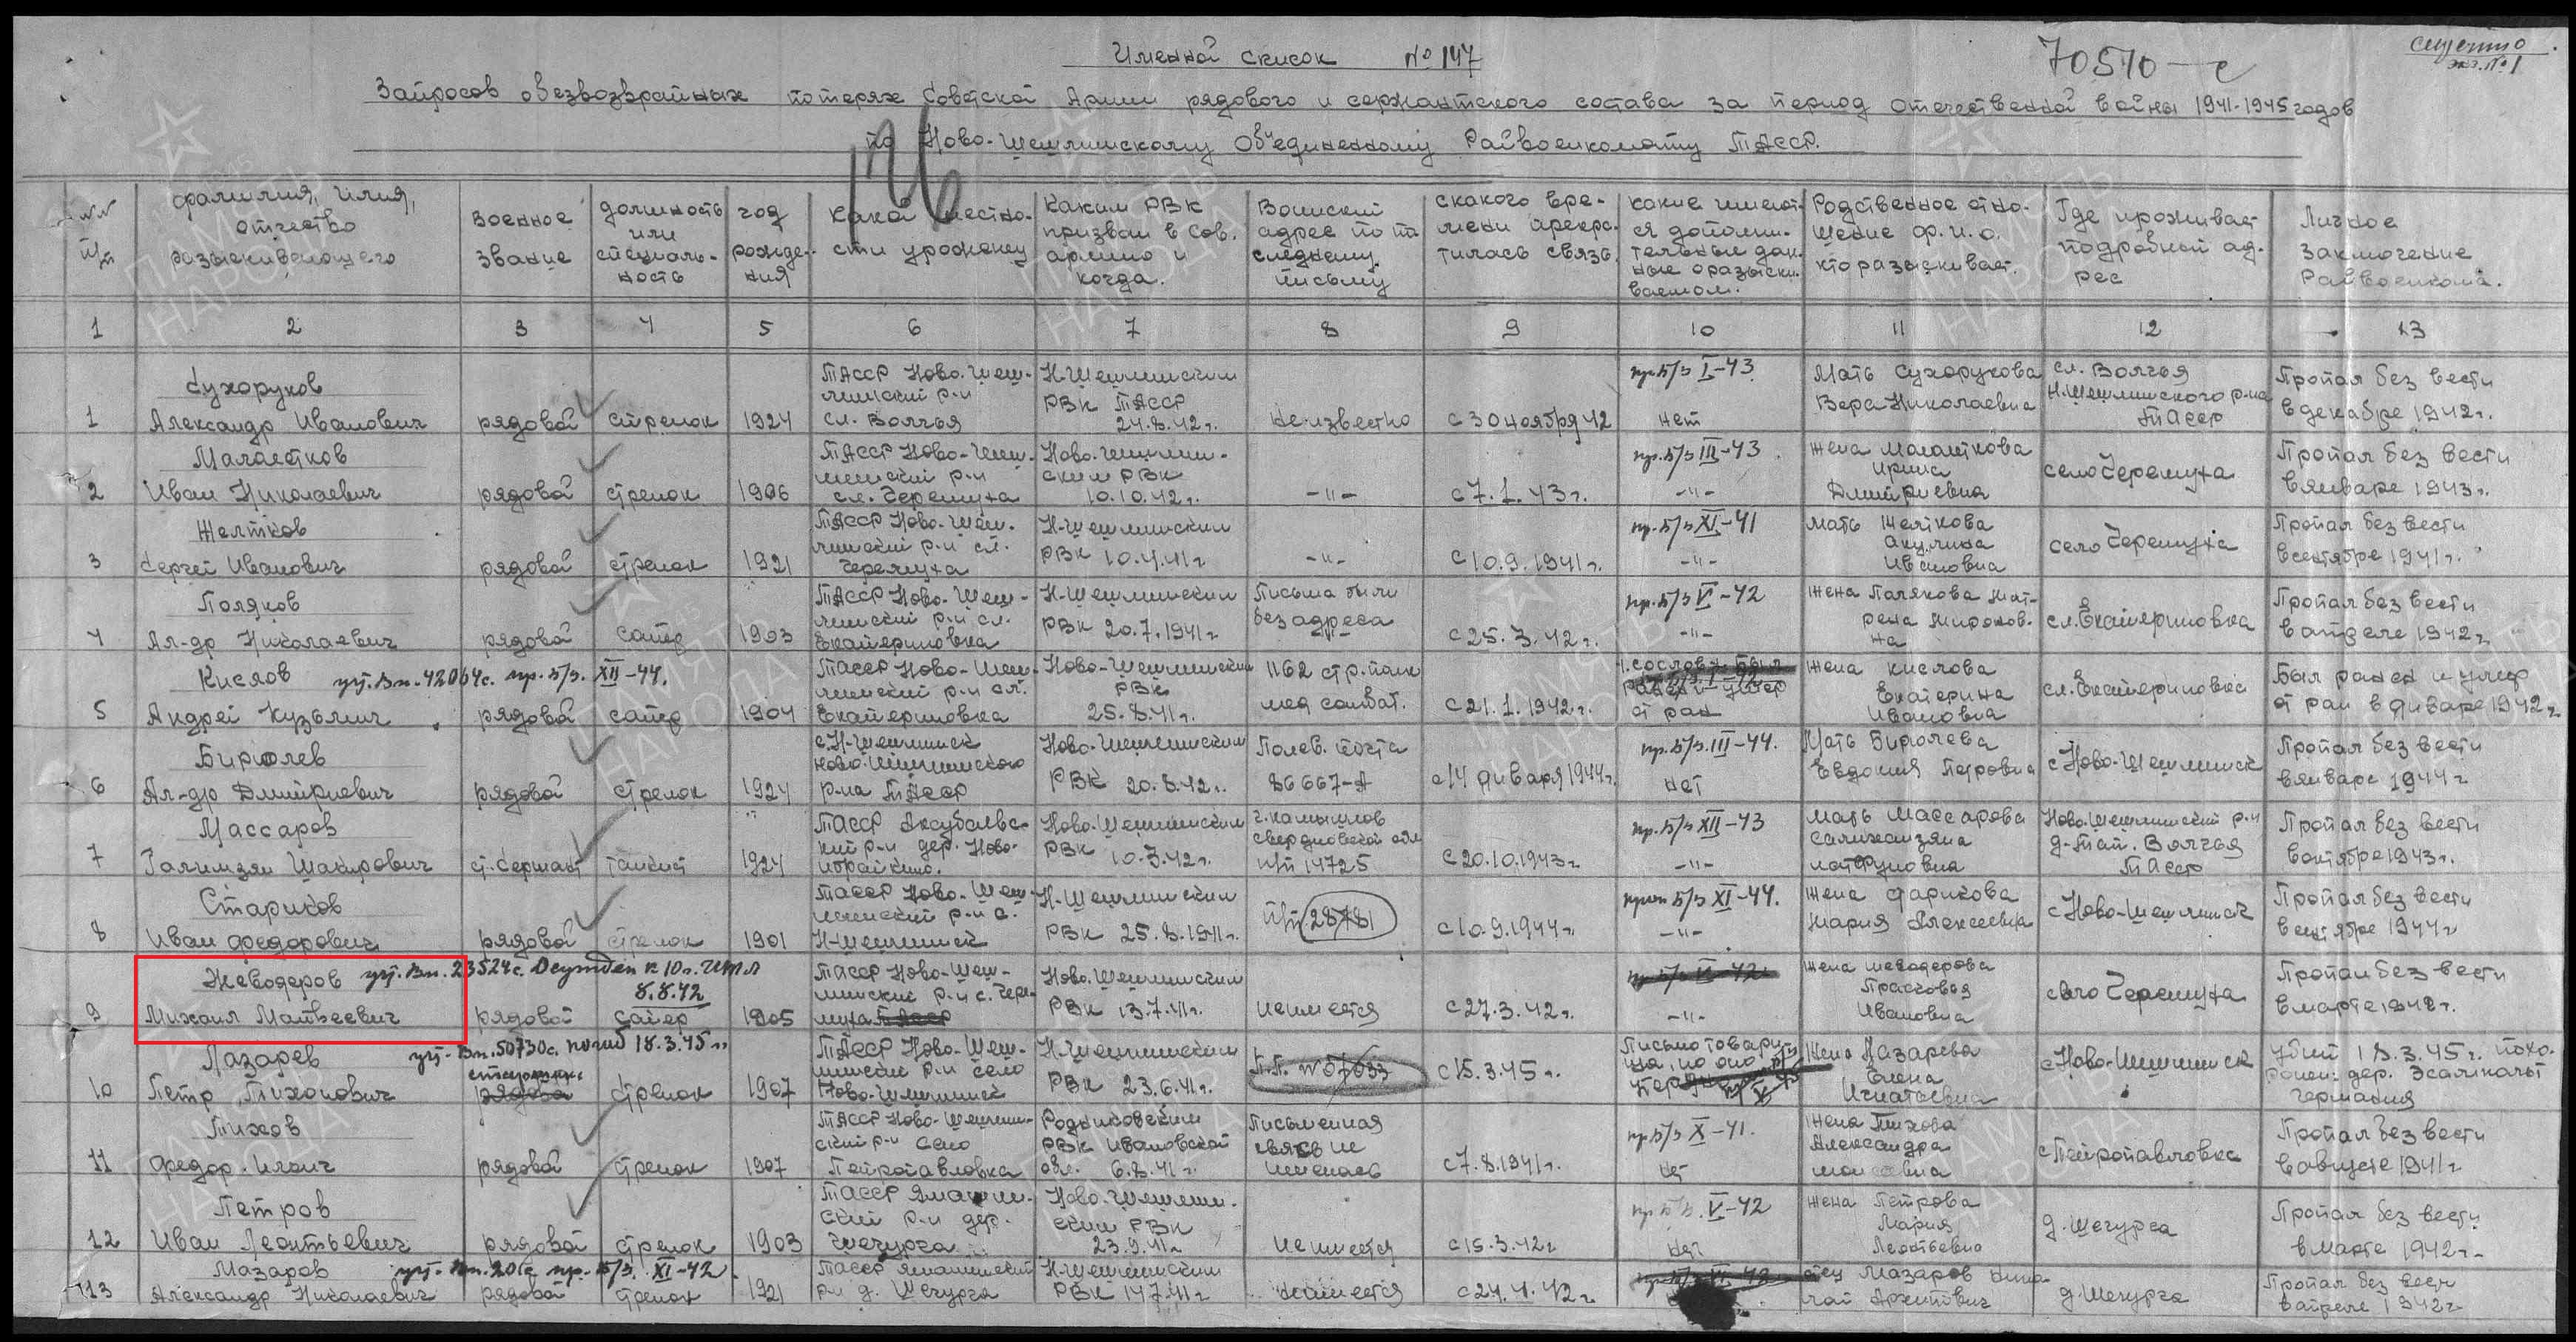 Именной список № 147
70510-с
секретно
экз. №1
Запросов о безвозвратных потерях Советской Армии рядового и сержантского состава за период отечественной войны 1941-1945 годов
по Ново-Шешминскому Объединенному Райвоенкомату ТАССР.
№№ п/п
фамилия, имя, отчество разыскивающего
военное звание
должность или специаль-ность
год рожде-ния
Какой местно-сти уроженец
Каким РВК призван в Сов. армию и когда.
Воинский адрес по по следнему письму
с какого вре-мени прекра-тилась связь
какие имеют-ся дополни-тельные дан-ные о разыски-ваемом.
Родственное отно-шение ф.и.о. кто разыскивает.
Где проживает подробный ад-рес
Личное заключение Райвоенкома.
1 2 3 4 5 6 7 8 9 10 11 12 13
1
Сухоруков
Александр Иванович
рядовой
стрелок
1924
ТАССР Ново-Шеш-
минский р-н
сл. Волчья
Н-Шешминским
РВК ТАССР
24.8.42г.
неизвестно
с 30 ноября 42
пр. б/в I-43
нет
Мать Сухорукова
Вера Николаевна
сл. Волчья
Н.Шешминского р-на
ТАССР
Пропал без вести
в декабре 1942г.
2
Иван Николаевич
рядовой
стрелок
1906
ТАССР Ново-Шеш-
минский р-н
сл. Черемуха
Ново-Шешмин-
ским РВК
10.10.42г.
-"-
с 7.1.43г.
пр. б/в III-43
-"-
жена
Ирина
Дмитриевна
село Черемуха
Пропал без вести
в январе 1943г.
3
Желтков
Сергей Иванович
рядовой
стрелок
1921
ТАССР Ново-Шеш-
минский р-н сл.
Черемуха
Н-Шешминским
РВК 10.4.41г
-"-
с 10.9.1941г.
пр. б/в XI-41
-"-
мать Желткова
Акулина
Ивановна
село Черемуха
Пропал без вести
в сентябре 1941г.
4
Поляков
Ал-др Николаевич
рядовой
сапер
1903
ТАССР Ново-Шеш-
минский р-н сл.
Екатериновка
Н-Шешминским
РВК 20.7.1941г
Письма были
без адреса
с 25.3.42г.
пр. б/в V-42
-"-
жена Полякова Мат-
рена Миронов-
на
сл. Екатериновка
Пропал без вести
в апреле 1942г.
5
Кислов уч. вп. 42064с. пр. б/в. XII-44.
Андрей Кузьмич
рядовой
сапер
1904
ТАССР Ново-Шеш-
минский р-н сл.
Екатериновка
Ново-Шешминским
РВК
25.8.41г.
1162 стр. полк
мед санбат.
с 21.1.1942г.
от ран
жена Кислова
Екатерина
Ивановна
сл. Екатериновка
Был ранен и умер
от ран в январе 1942г
6
Бирюлев
Ал-др Дмитриевич
рядовой
стрелок
1924
с. Н-Шешминск
Ново-Шешминского
р-на ТАССР
Ново-Шешминским
РВК 20.8.42г.
Полев. почта
86667-А
с 14 января 1944г.
пр. б/в. III-44.
нет
Мать Бирюлева
Евдокия Петровна
с Ново-Шешминск
Пропал без вести
в январе 1944г
7
Массаров
Галимзян Шакирович
ст. сержант
танкист
1924
ТАССР Аксубаевс-
кий р-н дер. Ново-
Ибрайкино.
Ново-Шешминским
РВК 10.7.42г.
г. Камышлов
Свердловской обл
п/п 14725
с 20.10.1943г
пр. б/в XII-43
-"-
мать Массарова
Ново-Шешминский р-н
д. Тат. Волчья
ТАССР
Пропал без вести
в октябре 1943г.
8
Стариков
Иван Федорович
рядовой
стрелок
1901
ТАССР Ново-Шеш-
минский р-н с.
Н-Шешминск
Н-Шешминским
РВК 25.8.1941г.
п/п 28781
с 10.9.1944г
проп б/в XI-44.
-"-
жена Старикова
Мария Алексеевна
с Ново-Шешминск
Пропал без вести
в сентябре 1944г
9
Неводеров уч. вп. 23524с. Осужден к 10г. ИТЛ
8.8.42
Михаил Матвеевич
рядовой
сапер
1905
ТАССР Ново-Шеш-
минский р-н с. Чере-
муха ТАССР
Ново-Шешминским
РВК 13.7.41г.
не имеется
с 27.3.42г.
-"-
жена Неводерова
Прасковья
Ивановна
село Черемуха
Пропал без вести
в марте 1942г.
10
Лазарев уч. вп. 50730с. погиб 18.3.45г.
Петр Тихонович
рядовой
стрелок
1907
ТАССР Ново-Шеш-
минский р-н село
Ново-Шешминск
Н-Шешминским
РВК 23.6.41г.
П.П. № 57633
с 15.3.45г.
Письмо товари-
ща, но оно
жена Лазарева
Елена
Игнатьевна
с Ново-Шешминск
убит 18.3.45г. похо-
ронен дер.
Германия
11
Тихов
Федор Ильич
рядовой
стрелок
1907
ТАССР Ново-Шешмин-
ский р-н село
Петропавловка
Родниковским
РВК Ивановской
обл. 6.8.41г.
Письменная
связь не
имелась
с 7.8.1941г.
пр б/в X-41.
нет
жена Тихова
Александра
с Петропавловка
Пропал без вести
в августе 1941г
12
Петров
Иван Леонтьевич
рядовой
стрелок
1903
ТАССР Ямашин-
ский р-н дер.
Шегурча
Ново-Шешмин-
ским РВК
23.9.41г
не имеется
с 15.3.42г
пр б/в. V-42
нет
жена Петрова
Мария
Леонтьевна
д. Шегурча
Пропал без вести
в марте 1942г.
13
Мазаров уч. вп. 201с пр. б/в. XI-42.
Александр Николаевич
рядовой
стрелок
1921
ТАССР Ямашинский
р-н д. Шегурча
Н.Шешминским
РВК 14.7.41г
не имеется
с 24.4.42г.
отец Мазаров Нико-
лай Архипович
д. Шегурча
Пропал без вести
в апреле 1942г